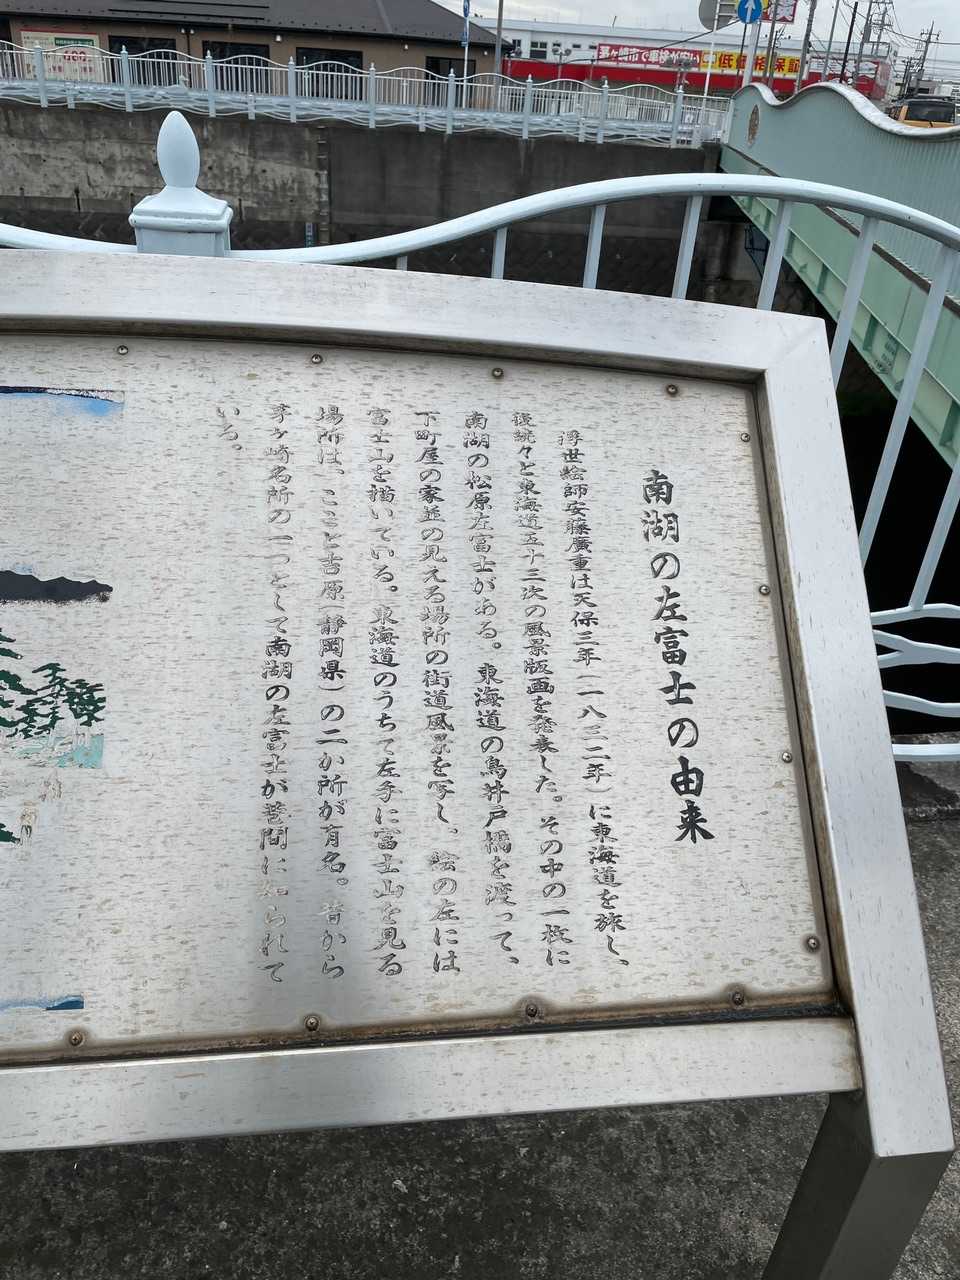 茅ヶ崎市で車検が安い
低価格保証
南湖の左富士の由来
浮世絵師安藤廣重は天保三年(一八三二年)に東海道を旅し、
後続々と東海道五十三次の風景版画を発表した。その中の一枚に
南湖の松原左富士がある。東海道の鳥井戸橋を渡って、
下町屋の家並の見える場所の街道風景を写し、絵の左には
富士山を描いている。東海道のうちで左手に富士山を見る
場所は、ここと吉原(静岡県)の二か所が有名。昔から
茅ヶ崎名所の一つとして南湖の左富士が巷間に知られて
いる。